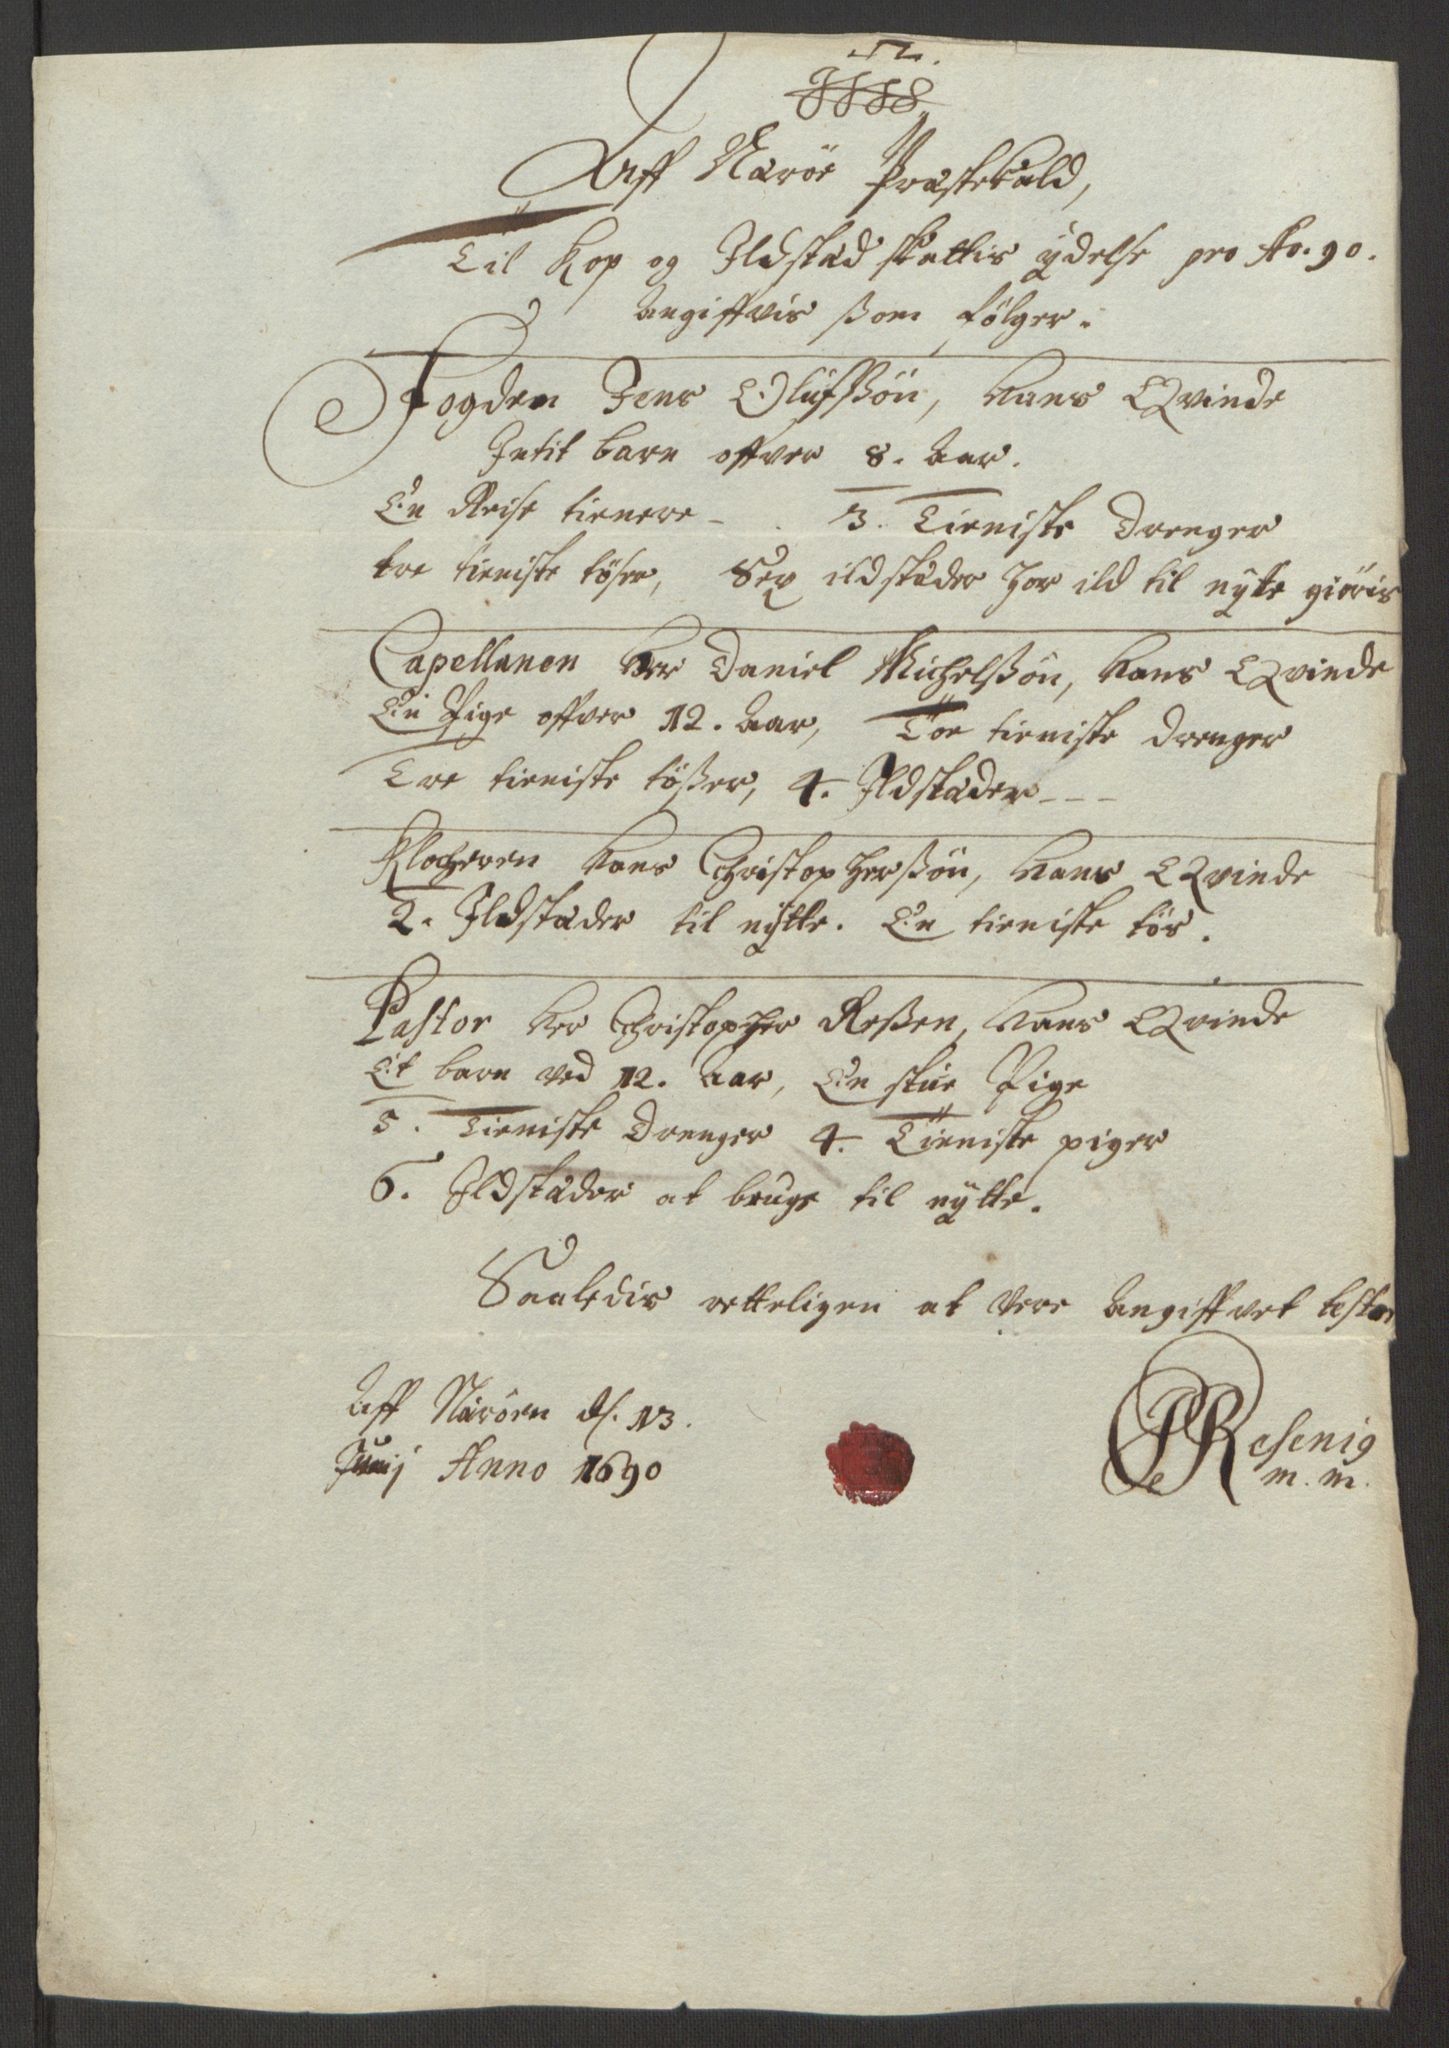 Aff Naröe Præstekald,
Til Kop og Ildstad skattis ÿdelse pro Ao. 90.
Angiffvis ßom følger.
Fogden Jens Olufßön, Hans Qvinde
Intit barn offver 8. Aar.
En Reise tienere - . 3. Tieniste Drenger
tre tieniste töser, Sex ildstæder hor ild til nÿtte giöris
Capellanen Her Daniel Michelßön, Hans Qvinde
En Pige offver 12. Aar, Toe tieniste drenger
Tre tieniste tößer, 4. Ildstæder - - -
Klocheren Hans Christopherßön, Hans Qvinde
2. Ildstæder til nÿtte. En tieniste tös.
Pastor Her Christopher Reßen, Hans Qvinde
Et barn ved 12. Aar, En stue Pige
5. Tieniste Drenger 4. Tieniste piger
6. Ildstæder at bruge til nÿtte.
Saaledis retteligen at Vere Angiffvet
Aff Naröen ds. 13.
Junij Anno 1690
CPResenig
m. m.